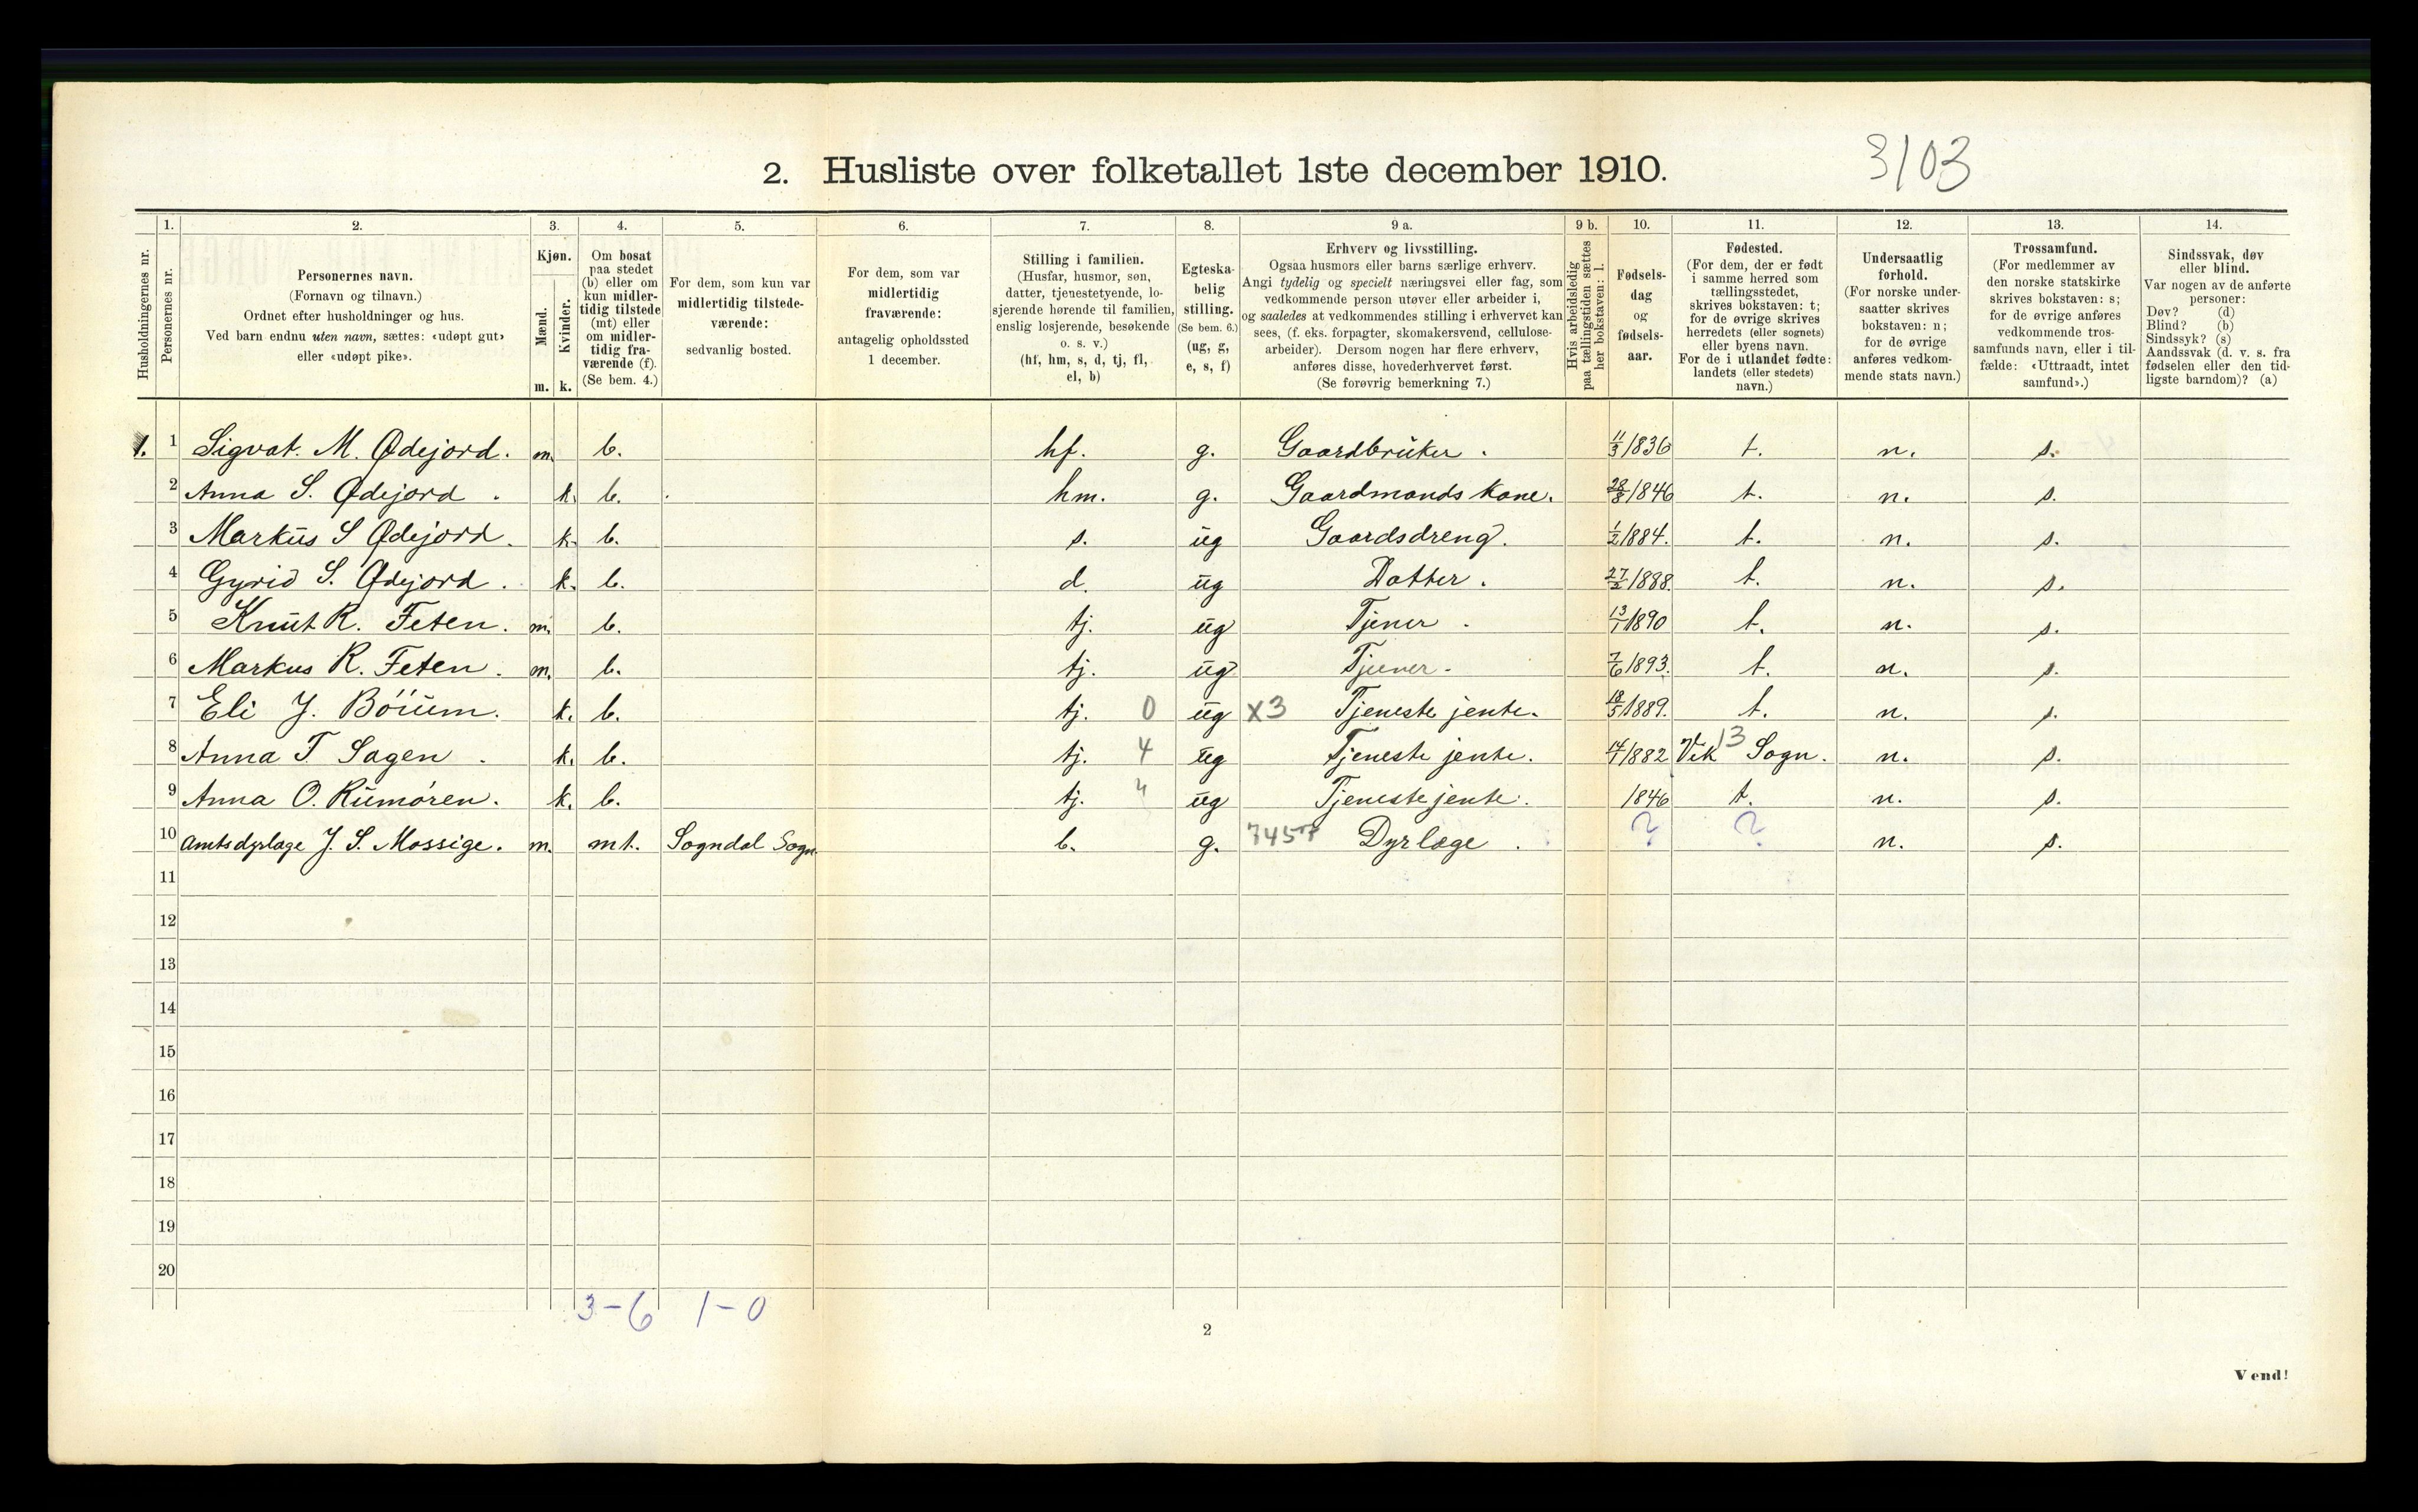 3103
2. Husliste over folketallet 1ste december 1910.
Husholdningernes nr.
1.
Personernes nr.
2.
Personernes navn.
(Fornavn og tilnavn.)
Ordnet efter husholdninger og hus.
Ved barn endnu uten navn, sættes: «udøpt gut»
eller «udøpt pike».
3.
Kjøn.
Mænd.
Kvinder.
m. k.
4.
Om bosat
paa stedet
(b) eller om
kun midler-
tidig tilstede
(mt) eller
om midler-
tidig fra-
værende (f).
(Se bem. 4.)
5.
For dem, som kun var
midlertidig tilstede-
værende:
sedvanlig bosted.
6.
For dem, som var
midlertidig
fraværende:
antagelig opholdssted
1 december.
7.
Stilling i familien.
(Husfar, husmor, søn,
datter, tjenestetyende, lo-
sjerende hørende til familien,
enslig losjerende, besøkende
o. s. v.)
(hf, hm, s, d, tj, fl,
el, b)
8.
Egteska-
belig
stilling.
(Se bem. 6.)
(ug, g,
e, s, f)
9 a.
Erhverv og livsstilling.
Ogsaa husmors eller barns særlige erhverv.
Angi tydelig og specielt næringsvei eller fag, som
vedkommende person utøver eller arbeider i,
og saaledes at vedkommendes stilling i erhvervet kan
sees, (f. eks. forpagter, skomakersvend, cellulose-
arbeider). Dersom nogen har flere erhverv,
anføres disse, hovederhvervet først.
(Se forøvrig bemerkning 7.)
9 b.
Hvis arbeidsledig
paa tællingstiden sættes
her bokstaven: l.
10.
Fødsels-
dag
og
fødsels-
aar.
11.
Fødested.
(For dem, der er født
i samme herred som
tællingsstedet,
skrives bokstaven: t;
for de øvrige skrives
herredets (eller sognets)
eller byens navn.
For de i utlandet fødte:
landets (eller stedets)
navn.)
12.
Undersaatlig
forhold.
(For norske under-
saatter skrives
bokstaven: n;
for de øvrige
anføres vedkom-
mende stats navn.)
13.
Trossamfund.
(For medlemmer av
den norske statskirke
skrives bokstaven: s;
for de øvrige anføres
vedkommende tros-
samfunds navn, eller i til-
fælde: «Uttraadt, intet
samfund».)
14.
Sindssvak, døv
eller blind.
Var nogen av de anførte
personer:
Døv? (d)
Blind? (b)
Sindssyk? (s)
Aandssvak (d. v. s. fra
fødselen eller den tid-
ligste barndom)? (a)
1. 1 Sigvat. M. Ødejord. m. b. hf. g. Gaardbrüker. 11/3 1836 t. n. s.
2 Anna S. Ødejord. k. b. hm. g. Gaardmands kone. 28/8 1846 t. n. s.
3 Markūs S Ødejord. k. b. s. ūg Gaardsdreng. 1/2 1884. t. n. s.
4 Gyrid S. Ødejord. k. b. d. ūg Datter. 27/2 1888. t. n. s.
5 Knūt R. Feten. m. b. tj. ūg Tjener. 13/1 1890 t. n. s.
6 Markus R. Feten. m. b. tj. ūg Tjener. 7/6 1893. t. n. s.
7 Eli J. Böūm. k. b. tj. 0 ūg x3 Tjeneste jente. 18/5 1889. t. n. s.
8 Anna T Sagen. k. b. tj. 4 ūg Tjeneste jente. 1882 Vik 13 Sogn. n. s.
9 Anna O. Rūmören. k. b. tj. 4 ūg Tjenestejente. 1846 t. n. s.
10 Amtsdyrlæge J. S. Mossige. m. mt. Sogndal Sogn. b. g. 7457 Dyrlæge. ? ? n. s.
11
12
13
14
15
16
17
18
19
20
3-6 1-0
2
Vend!